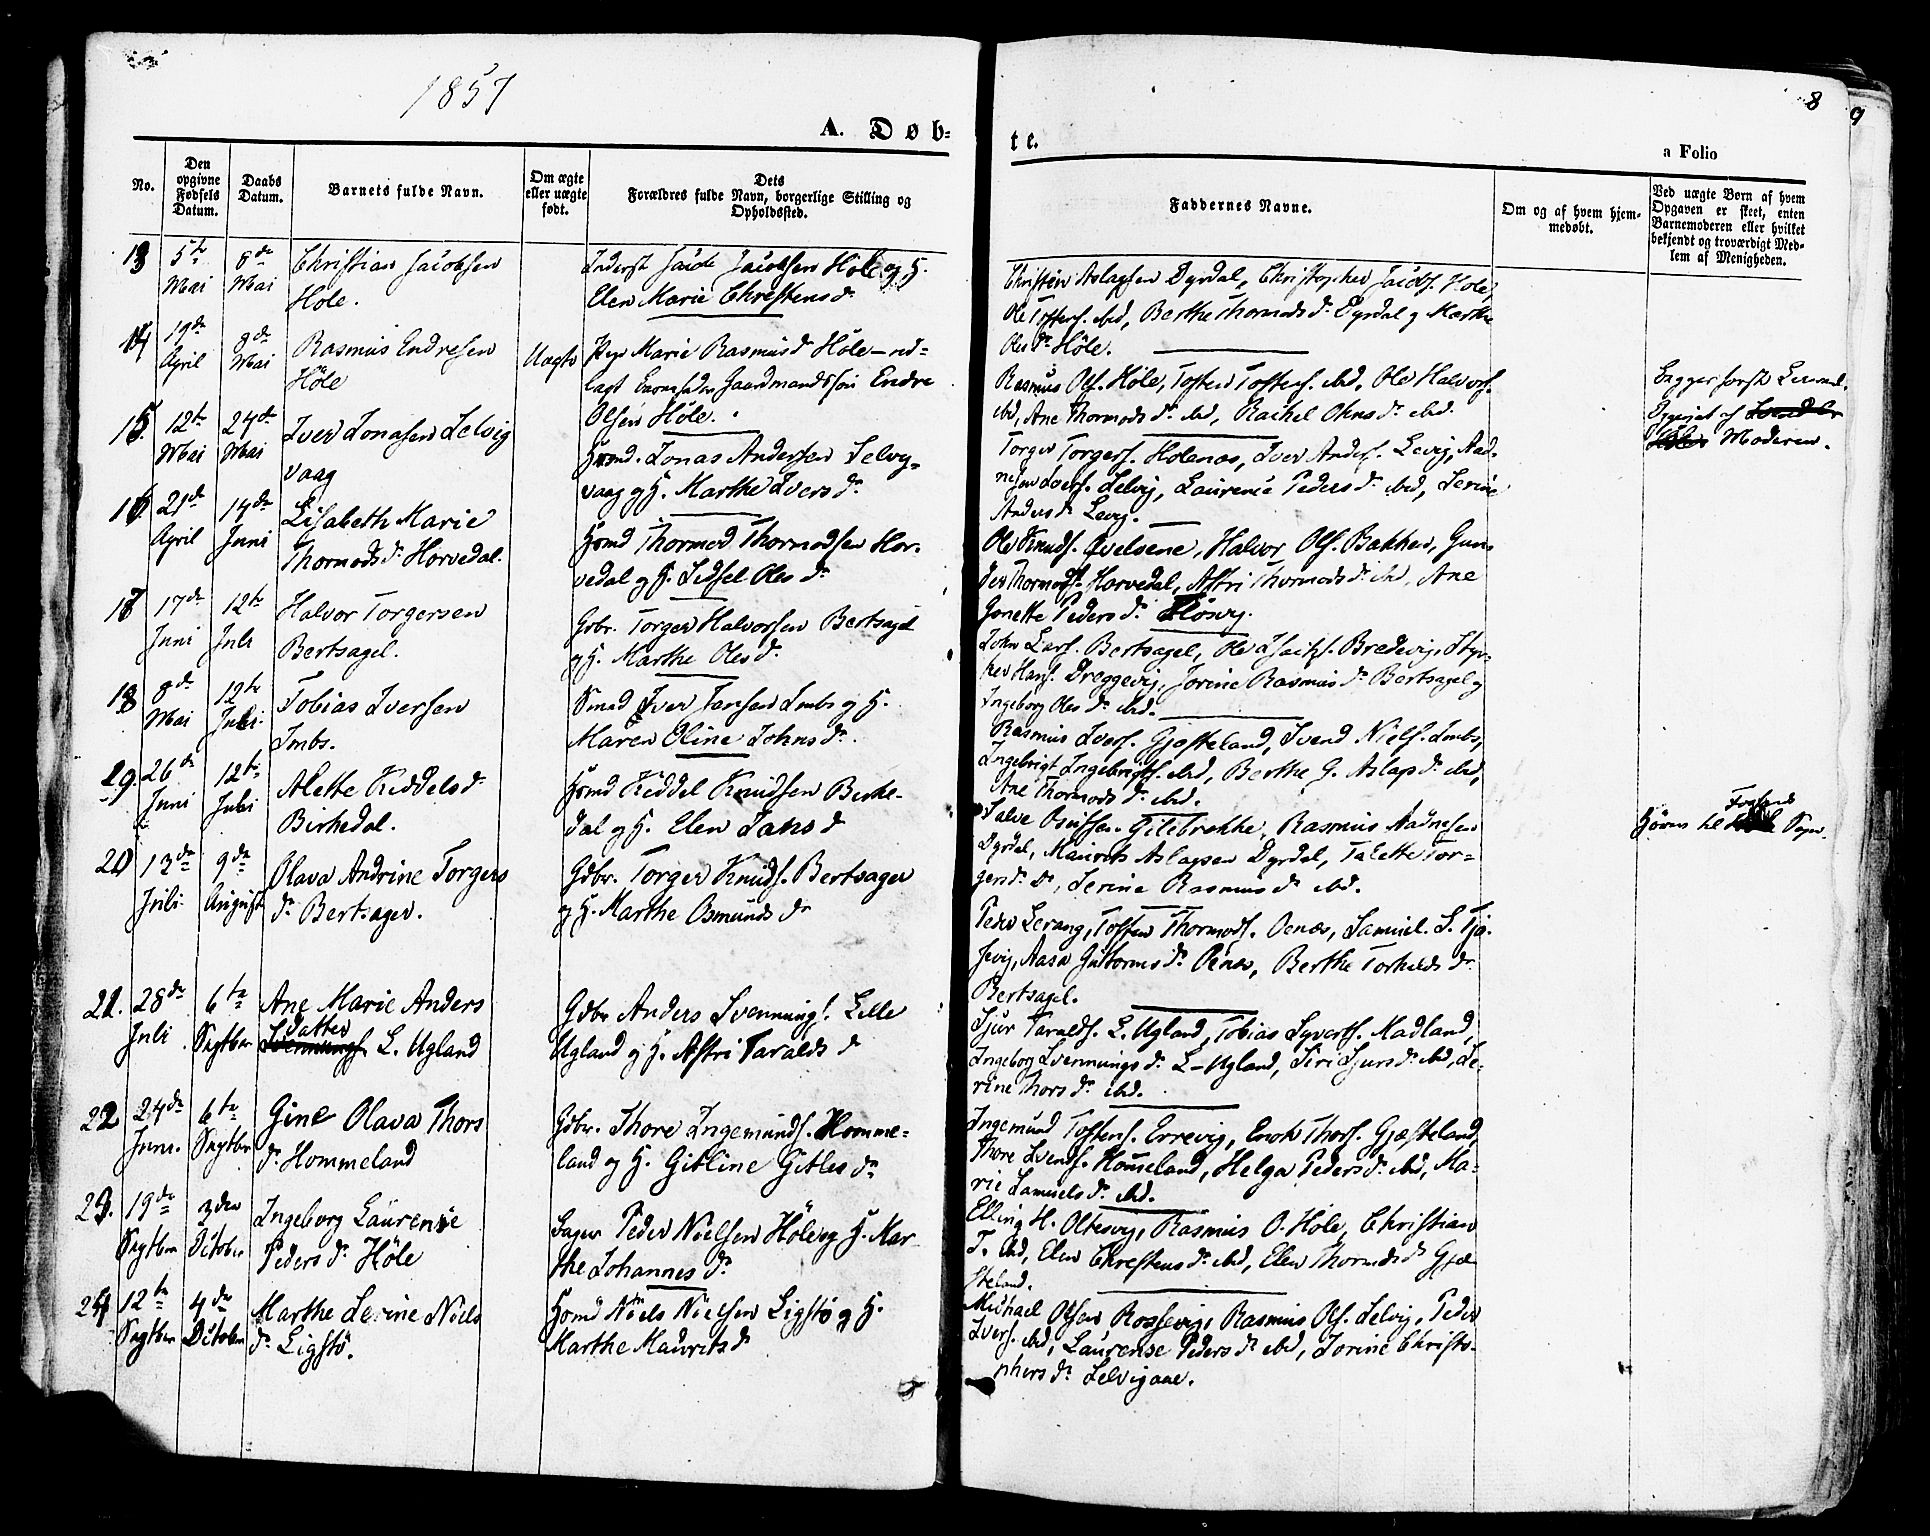 1857
8
9
A. Døb-
te.
a Folio
No.
Den opgivne Fødsels Datum.
Daabs Datum.
Barnets fulde Navn.
Om ægte eller uægte født.
Dets Forældres fulde Navn, borgerlige Stilling og Opholdssted.
Faddernes Navne.
Om og af hvem hjemmedøbt.
Ved uægte Børn af hvem Opgaven er skeet, enten Barnemoderen eller hvilket bekjendt og troværdigt Medlem af Menigheden.
13 5te Mai 8de Mai Christian Jacobsen
Høle.
Jacobsen Höle og H.
Elen Marie Chrestens dr
Aslagsen Dyrdal, Christopher Jacobs. Hole,
Ole Tostens. ibid, Berthe Thormods dr Dyrdal g Marthe
Oles dr Høle.
14 19de April 8de Mai Rasmus Endresen
Höle
Uægte
Pige Marie Rasmus dr Höle – ud-
lagt Barnefader Gaardmandssøn Endre
Olsen Höle.
Rasmus Ols. Høle, Tosten Tostens. ibd, Ole Halvors.
ibd, Ane Thormods dr ibd, Rachel Ohns dr ibd.
Moderen.
15. 12te Mai 24de Mai Iver Jonasen Selvig
vaag
Hsmd. Jonas Andersen Selvg-
vaag g H. Marthe Ivers dr
Torger Torgers. Holenæs, Iver Anders. Levig, Aad-
Ivers. Selvig, Laurence Peders dr ibd, Serine
Anders dr Levig.
16. 21de April 14de Juni Lisabeth Marie
Thormods dr Horvedal.
Hsmd Thormod Thormodsen Hor-
vedal g H. Sidsel Oles dr
Ole Knuds. Qvelsene, Halvor Ols. Bakken, Gun-
der Thormods. Horvedal, Astri Thormods dr ibd, Ane
Jonette Peders dr
17 17de Juni 12te Juli Halvor Torgersen
Bertsagel.
Gdbr. Torger Halvorsen Bertsagel
g H. Marthe Oles dr.
John Lars. Bertsagel, Ole Bredevig,
Hans. Dreggevig, Jorine Rasmus dr Bertsagel g
Ingeborg Oles dr ibd.
18 8de Mai 12te Juli Tobias Iversen
Imbs.
Iver Imbs g H.
Maren Oline Johns dr.
Rasmus Ivers. Gjæsteland, Svend Niels. Imbs,
Ingebrigt Ingebrigts. ibd, Berthe G. Aslags dr ibd,
Ane Thormods dr ibd.
19. 26de Juni 12te Juli Alette Kiddels dr
Birkedal.
Hsmd Kiddel Knudsen Birke-
dal g H. Elen Jans dr
Salve Gilebrekke, Rasmus Aadnesen
Dyrdal, Maurits Aslagsen Dyrdal, Talette Tor-
gers dr Do, Serine Rasmus dr ibd.
Forsand
Hörer til Sogn.
20 13de Juli 9de August Olava Andrine Torgers
dr Bertsagel.
Gdbr. Torger Knuds. Bertsagel
g H. Marthe Osmunds dr
Peder Lerang, Tosten Thormods. Oenæs, Samuel. S. Tjø-
sevig, Aasa Guttorms dr Oenes, Berthe Torkilds dr
Bertsagel.
21. 28de Juli 6te Septbr Ane Marie Anders
datter
L. Ugland
Gdbr Anders Svennings. Lille
Ugland g H. Astri Taralds dr
Sjur Taralds. L. Ugland, Tobias Syverts. Madland,
Ingeborg Svennings dr L-Ugland, Siri Sjurs dr ibd, Se-
rine Thors dr ibd.
22 24de Juni. 6te Septbr Gine Olava Thors
dr Hommeland
Gdbr. Thore Ingemunds. Homme-
land og H. Gitline Gitles dr
Ingemund Tostens. Errevig, Enok Thors. Gjæsteland,
Thore Svends. Hommeland, Helga Peders dr ibd, Ma-
rie Samuels dr ibd.
23. 19de Septbr 3den October Ingeborg Laurense
Peders dr Höle
Peder Nielsen Höle og H. Mar-
the Johannes dr
Elling H. Oltesvig, Rasmus O. Hole, Christian
T. ibd, Elen Chrestens dr ibd, Elen Thormods dr Gjæ-
steland.
24 12te Septbr 4de October Marthe Serine Niels
dr Ligstø.
Hsmd Niels Nielsen Ligstø g H.
Marthe Maurits dr
Michael Olsen Rossevig, Rasmus Ols. Selvig, Peder
Ivers. ibd, Laurense Peders dr ibd, Jorine Christo-
phers dr